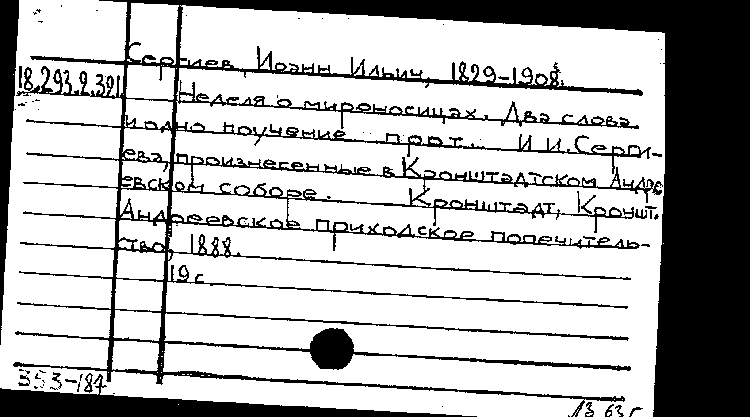 Сергиев, Иоанн Ильич, 1829-1908.
18.293.2.391.
Неделя о мироносицах. Два слова
и одно поучение прот. И.И.Серги-
ева, произнесенные в Кронштадтском Андре
евском соборе. Кронштадт, Кроншт.
Андреевское приходское попечитель-
ство, 1888.
19 с.
353-184
13 63 г